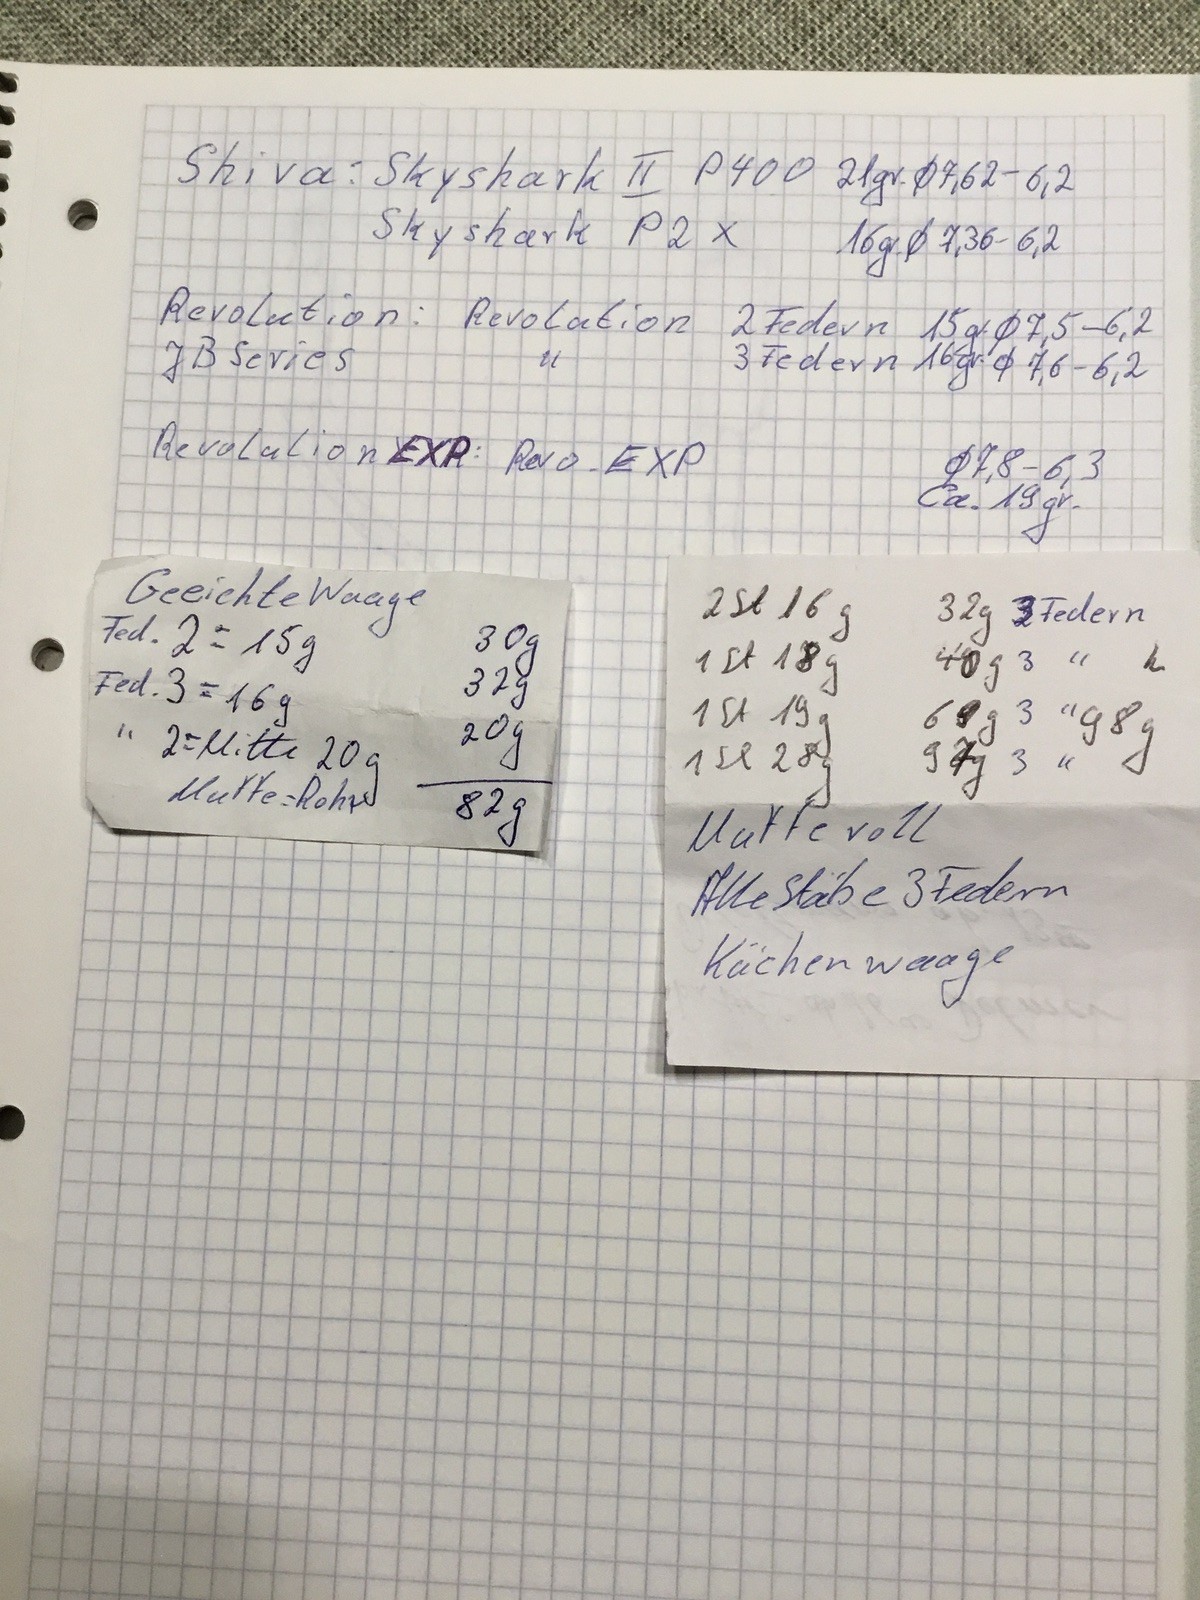 Shiva: Skyshark II P400 21gr. ϕ7,62-6,2
Skyshark P2 X 16gr. ϕ 7,36-6,2
Revolution: Revolution 2 Federn 15gr. ϕ7,5-6,2
JB Series " 3 Federn 16gr. ϕ 7,6-6,2
Revolution EXP: Revo-EXP ϕ7,8-6,3
Ca. 19gr.
Geeichte Waage
Fed. 2 = 15g 30g
Fed. 3 = 16g 32g
" 2=Mitte 20g 20g
Muffe=Rohr 82g
2 St 16g 32g Federn
1 St 18g g 3 "
1 St 19g g 3 " 98g
1 St 28g g 3 "
Muffe voll
Alle Stäbe 3 Federn
Küchenwaage